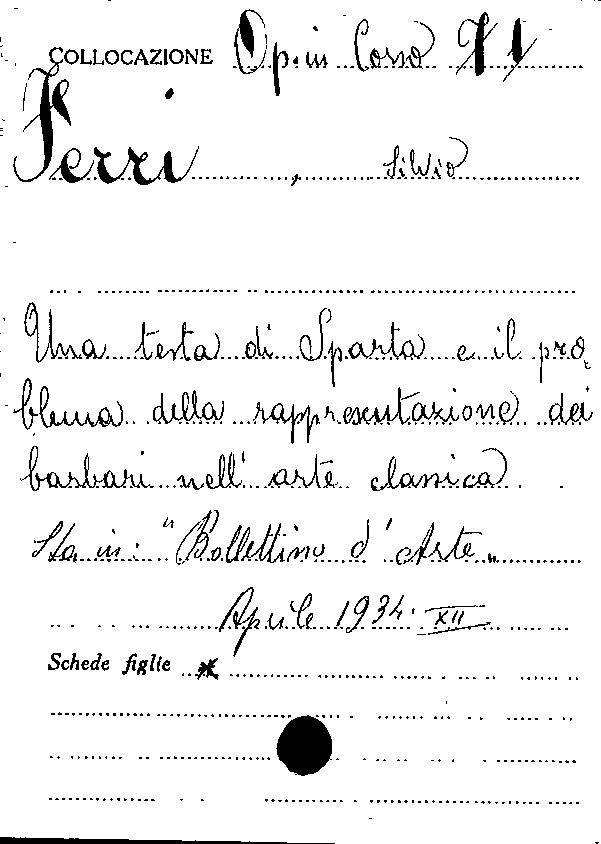 COLLOCAZIONE Op. in Corso 71
Ferri, Silvio
Una testa di Sparta e il pro,
blema della rappresentazione dei
barbari nell'arte classica.
Sta in: "Bollettino d'Arte"
Aprile 1934. XII
Schede figlie *